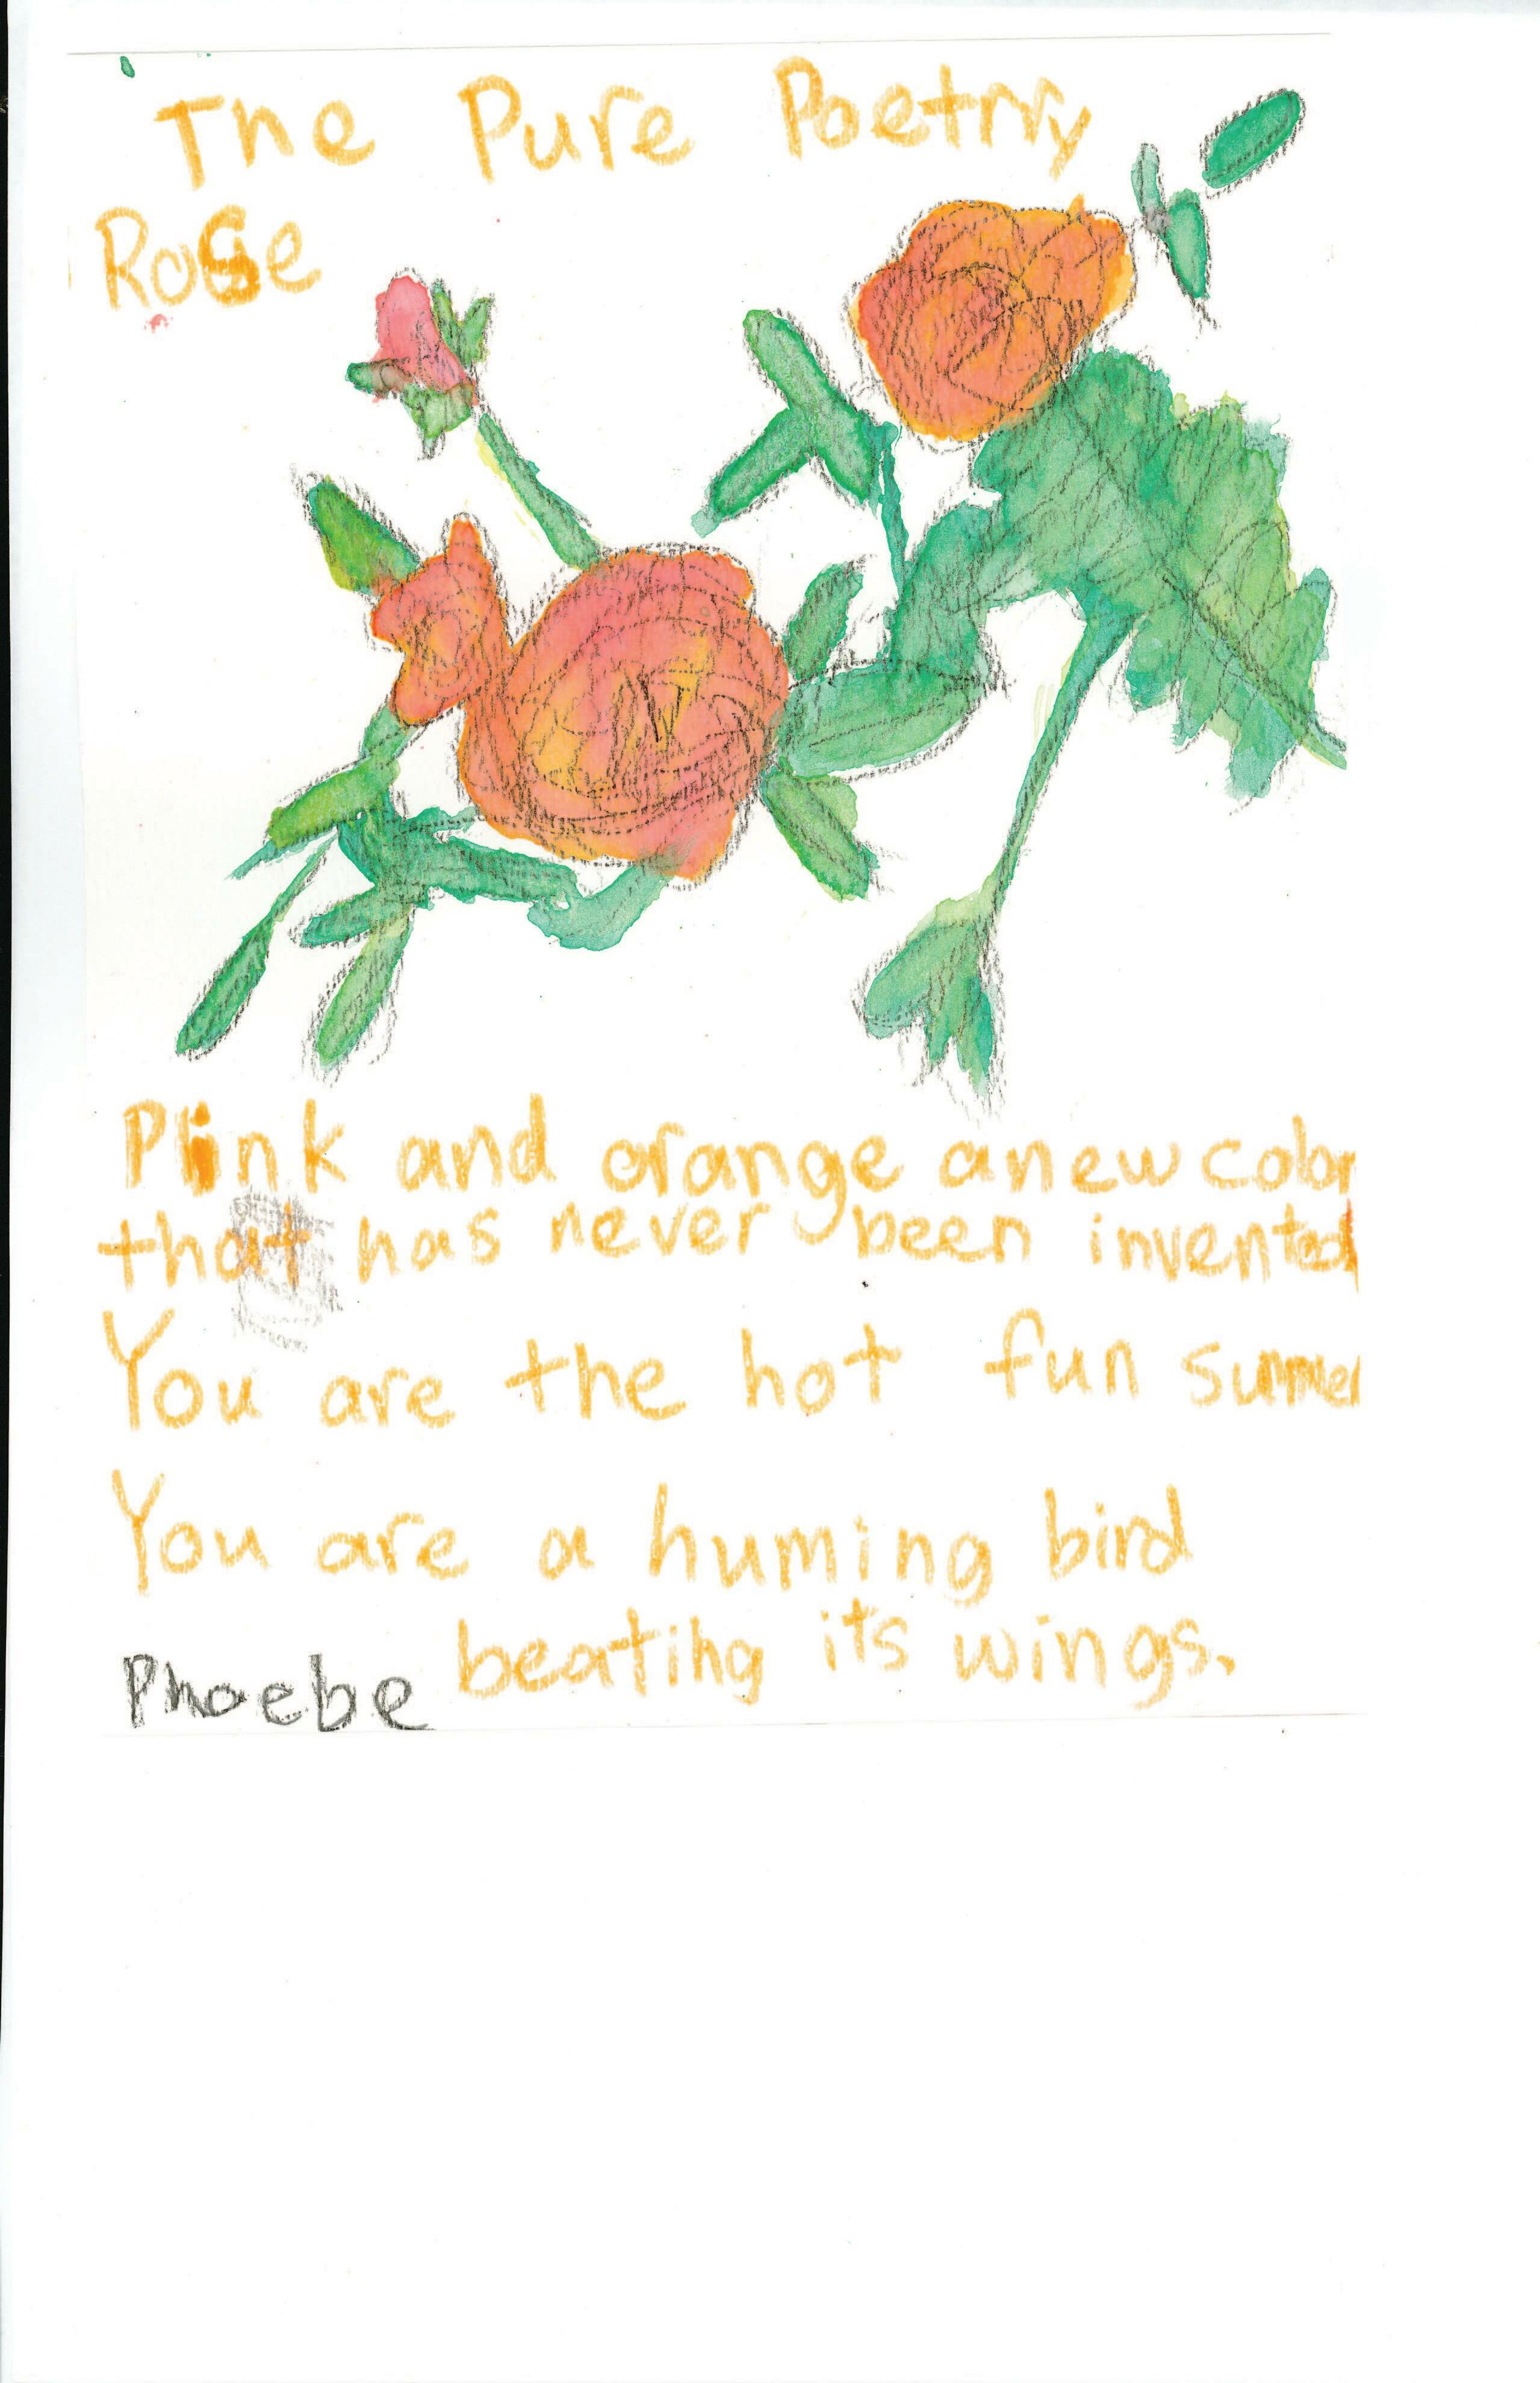 The Pure Poetry
Rose
Pink and orange a new color
that has never been invented
You are the hot fun summer
You are a huming bird
beating its wings.
Phoebe